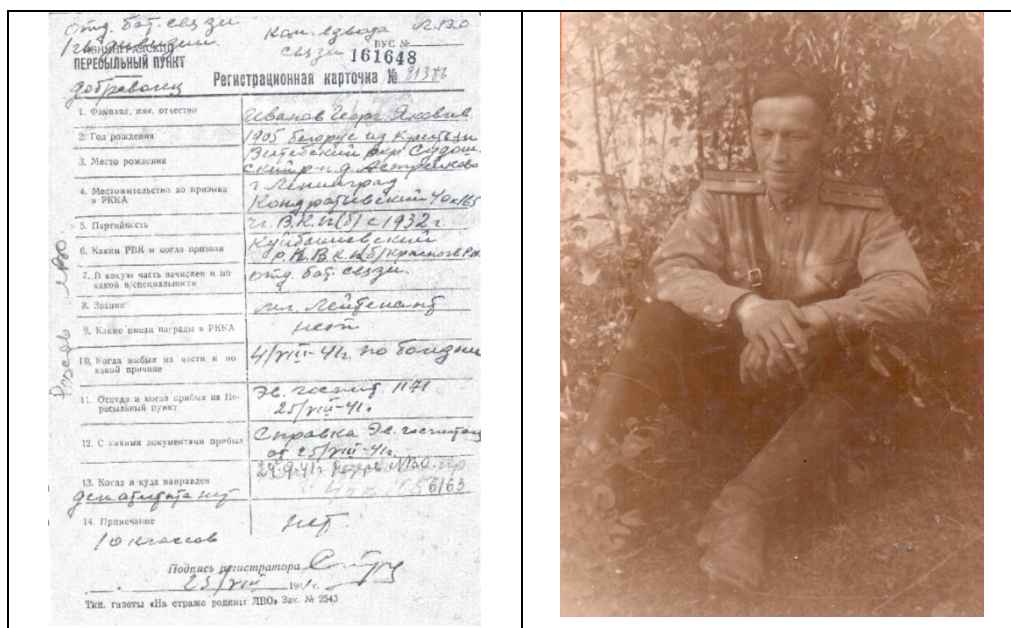 Отд. бат. связи
1 гв. дивизии
Ком. взвода
связи
Л.В.О
ВУС №
161648
ПЕРЕСЫЛЬНЫЙ ПУНКТ
доброволец
Регистрационная карточка №
1. Фамилия, имя, отчество
Иванов Георг. Яковлев.
2. Год рождения
1905 белорус из крестьян
3. Место рождения
Витебский окр.
4. Местожительство до призыва
в РККА
г. Ленинград
Кондратьевский 40 к 165
5. Партийность
чл. В.К.П(б) с 1932 г.
6. Каким РВК и когда призван
Куйбышевский
7. В какую часть зачислен и по
какой в/специальности
отд. бат. связи.
8. Звание
мл. лейтенант
9. Какие имели награды в РККА
нет
10. Когда выбыл из части и по
какой причине
4/VIII-41г. по болезни
11. Откуда и когда прибыл на Пе-
ресыльный пункт
Эв. госпит. 1171
25/VIII-41г.
12. С какими документами прибыл
Справка Эв. госпиталя
от 25/VIII-41г.
13. Когда и куда направлен
6163
14. Примечание
нет.
10 классов
Подпись регистратора
25/VIII 1941г.
Тип. газеты «На страже родины ЛВО» Зак. № 2543